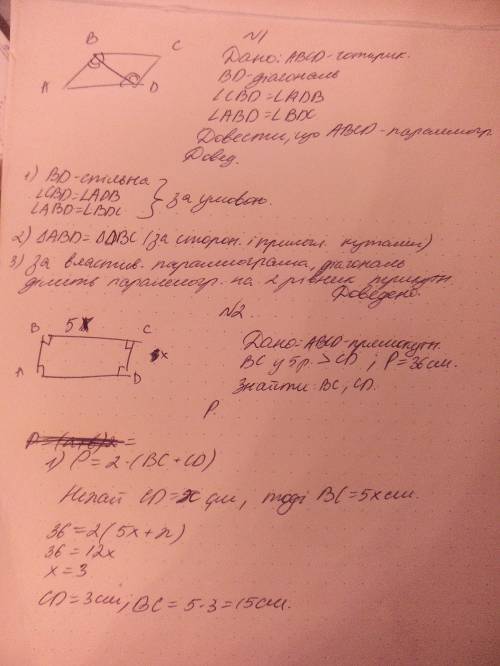 №1
B
C
A
D
Дано: ABCD - чотирик.
BD - діагональ
∠CBD = ∠ADB
∠ABD = ∠BDC
Довести, що ABCD - паралелогр.
Довед.
1) BD - спільна
∠CBD = ∠ADB
∠ABD = ∠BDC
} за умовою.
2) ΔABD = ΔDBC (за сторон. і прилегл. кутами)
3) за властив. паралелограма, діагональ
ділить паралелогр. на 2 рівних
Доведено.
№2.
B
5x
C
x
A
D
Дано: ABCD - прямокутн.
BC у 5 р. > CD ; P = 36 см.
Знайти: BC, CD.
P
1) P = 2·(BC + CD)
Нехай CD = x см, тоді BC = 5x см.
36 = 2(5x + x)
36 = 12x
x = 3
CD = 3 см; BC = 5·3 = 15 см.